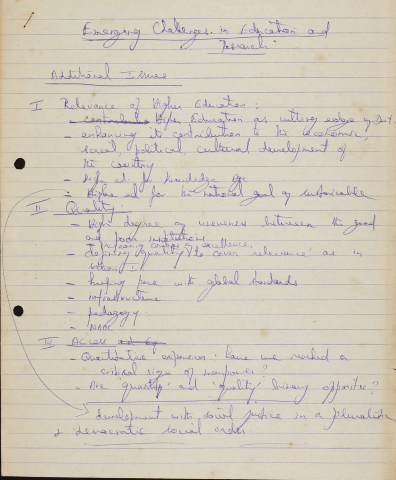 Emerging Challenges in Education and
Research
Additional Issues
I Relevance of Higher Education:
- Higher Education as cutting edge
- enhancing its contribution to the economic,
social, political, cultural development of
the country
- Higher ed. for knowledge age
- Higher ed for the national goal of sustainable
II Quality:
- High degree of uneveness between the good
and poor institutions
- preparing centres of excellence
- defining quality to cover 'relevance' as in
- keeping pace with global standards
- infrastructure
- pedagogy
- NAAC
III Access
- Quantitative expansion: have we reached a
critical size of manpower?
- Are 'quantity' and 'quality' binary opposites?
development with social justice in a pluralistic
& democratic social order